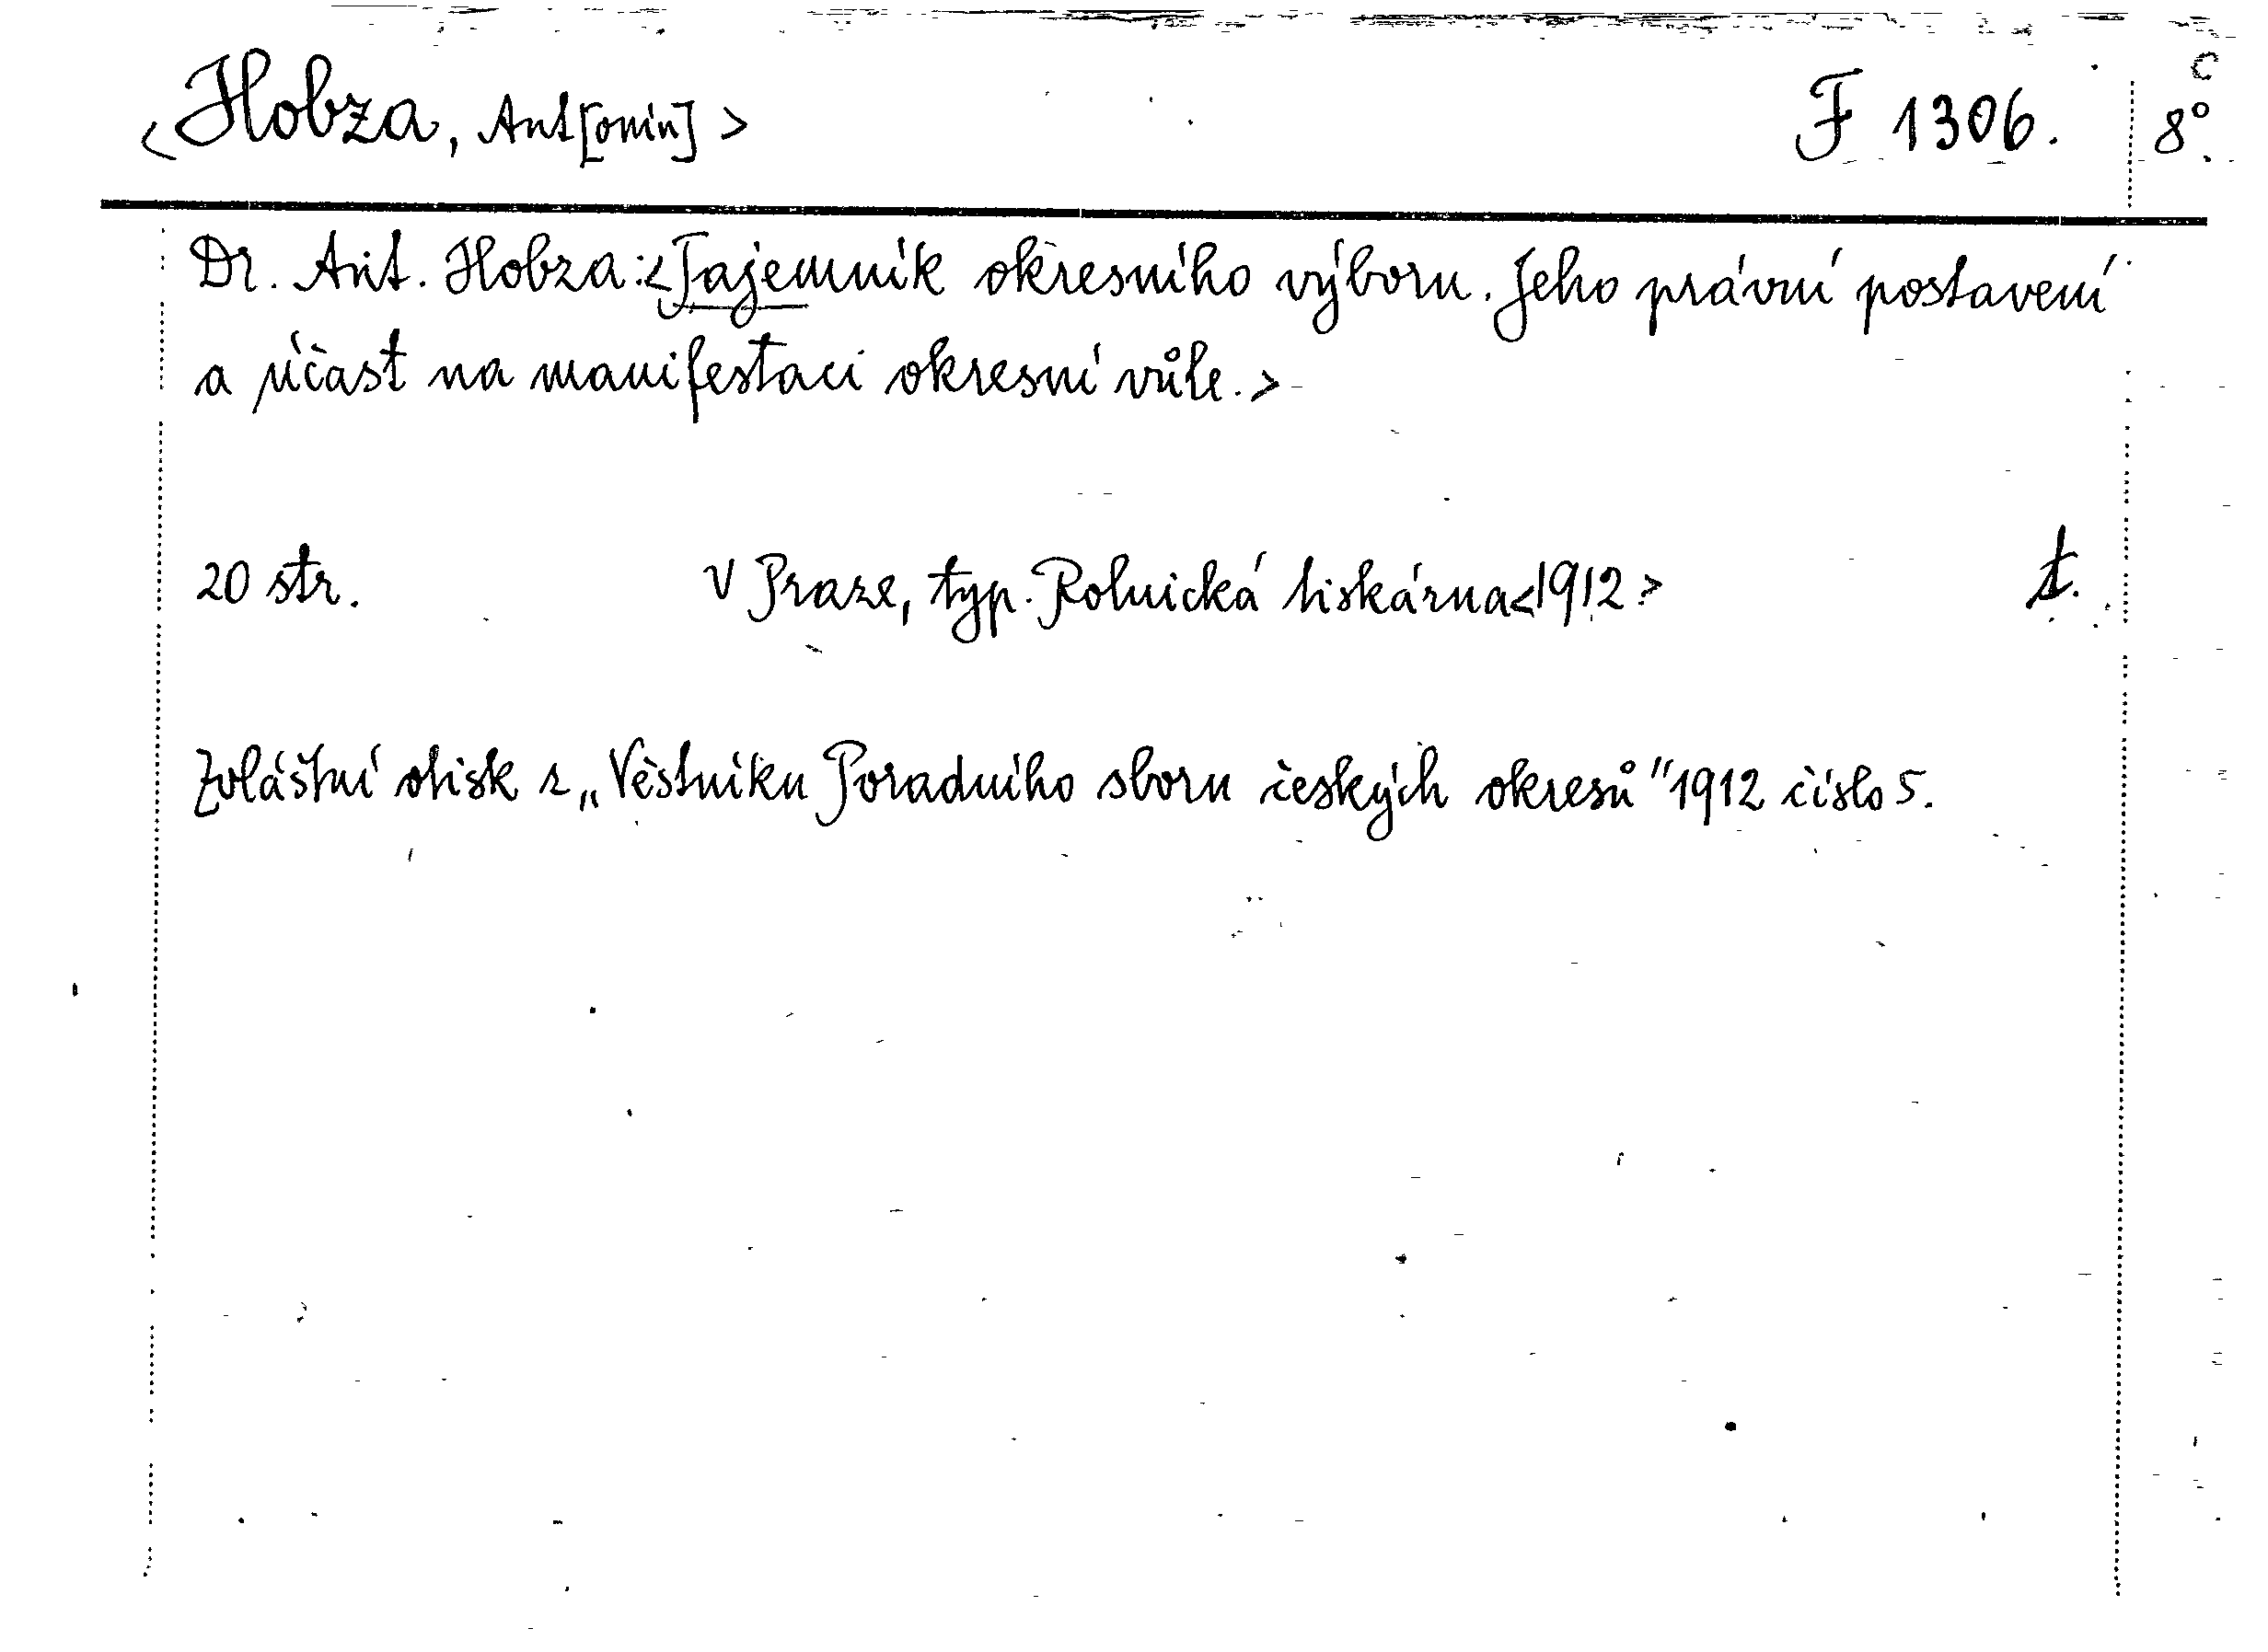 <Hobza, Ant[onín]> F 1306. 8° C
Dr. Ant. Hobza: <Tajemník okresního výboru. Jeho právní postavení
a účast na manifestaci okresní vůle.>
20 str. V Praze, typ. Rolnická tiskárna <1912> t.
Zvláštní otisk z „Věstníku Poradního sboru českých okresů" 1912 číslo 5.